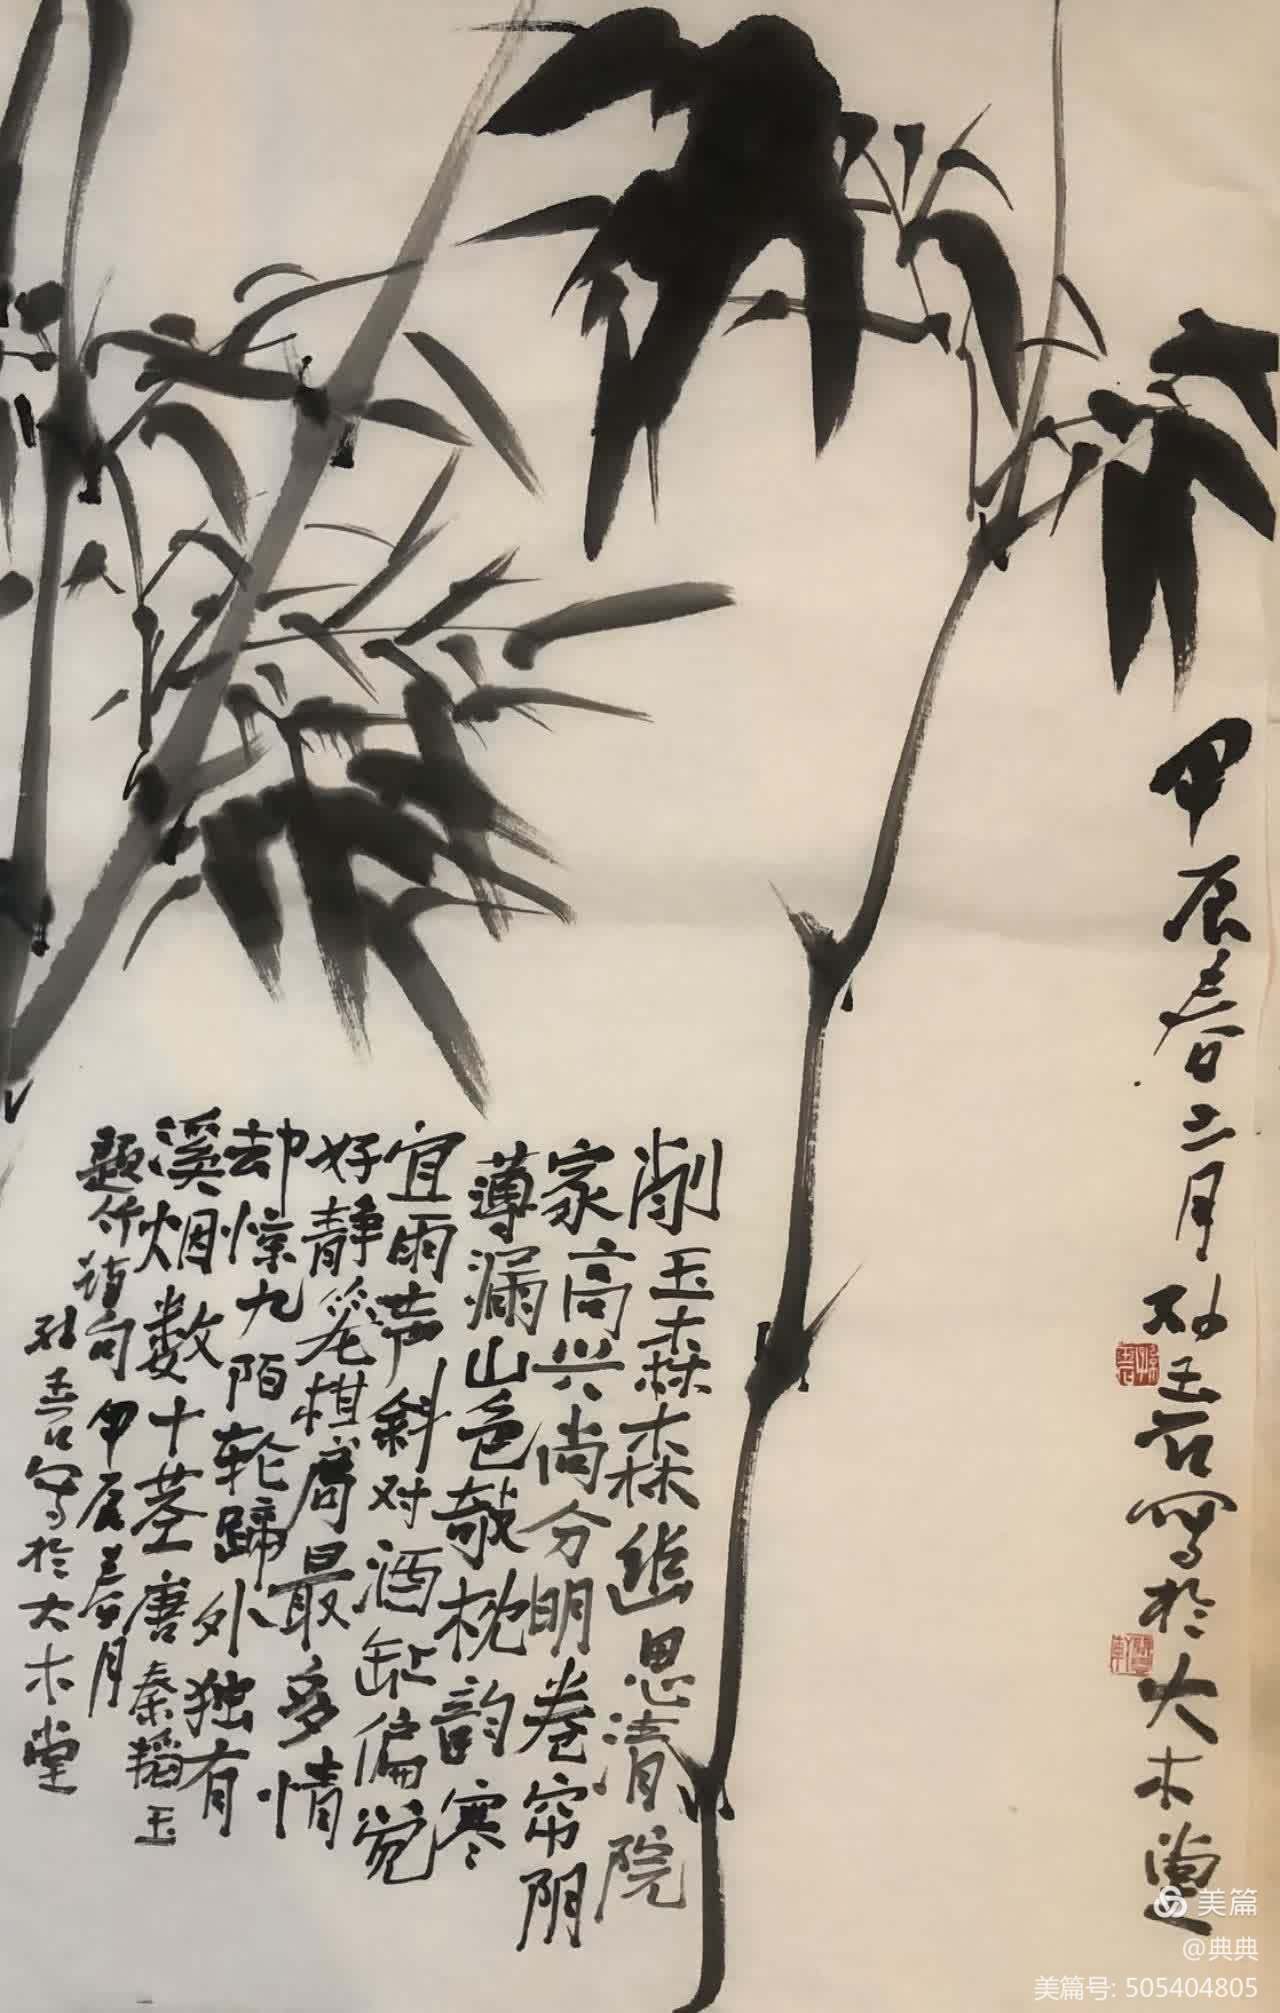 甲辰春二月孙写於大木堂
削玉森森幽思清院
家高兴尚分明卷帘阴
薄漏山色欹枕韵寒
宜雨声斜对酒缸偏觉
好静笼棋局最多情
却惊九陌轮蹄外独有
溪烟数十茎唐秦韬玉
题竹诗句甲辰春月
孙写於大木堂
美篇
@典典
美篇号: 505404805